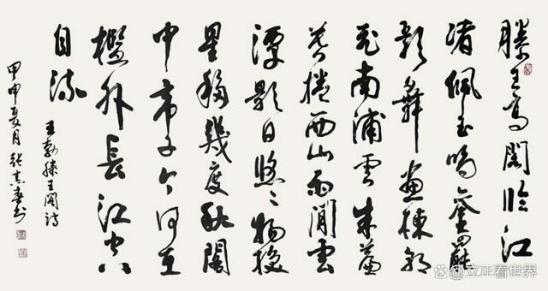 滕王高閣臨江
渚佩玉鳴鑾罷
歌舞畫棟朝
飛南浦雲朱簾
暮捲西山雨閒雲
潭影日悠々物換
星移幾度秋閣
中帝子今何在
檻外長江空
自流
王勃滕王閣詩
甲申夏月張書
立正看世界